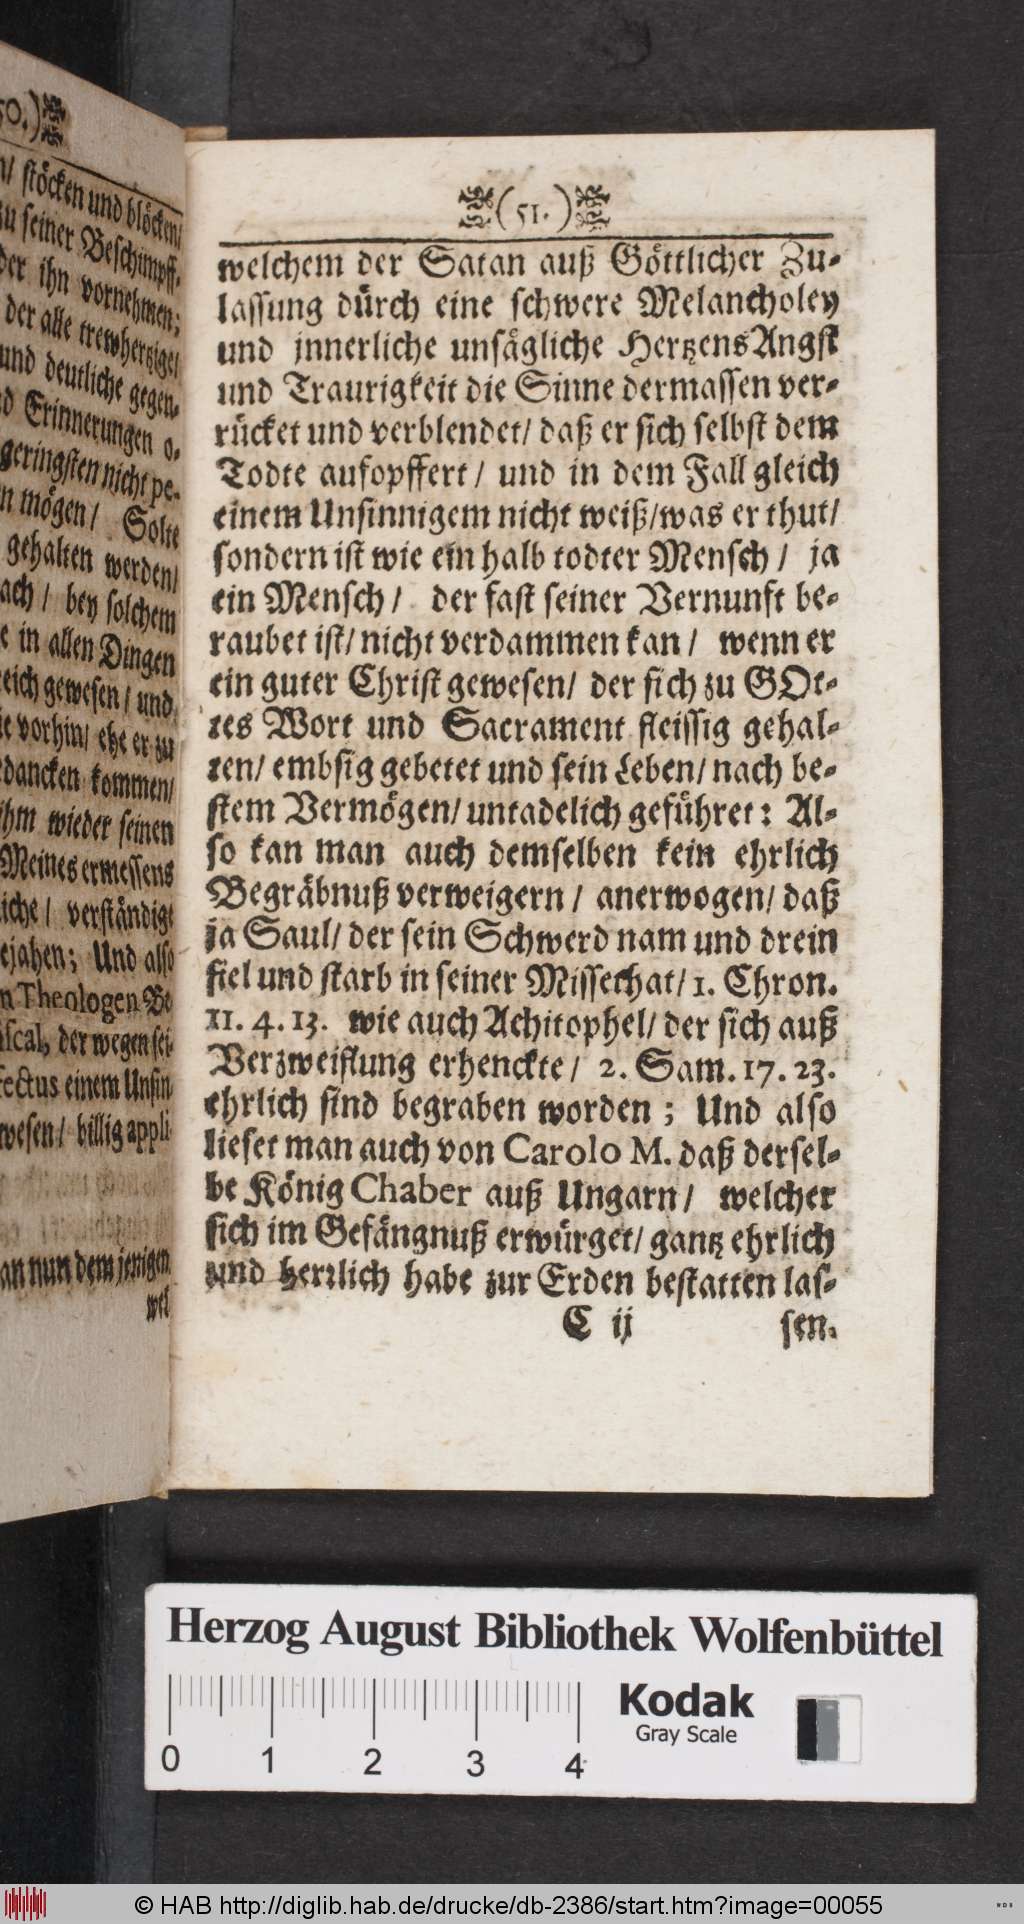 50.)
stöcken und blöcken/
zu seiner Beschimpff-
der ihn vornehmen;
der alle trewhertzige/
und deutliche gegen-
Erinnerungen o-
geringsten nicht pe-
mögen/ Solte
gehalten werden/
ach/ bey solchem
in allen Dingen
gewesen/ und
vorhin/ ehe er zu
dancken kommen/
ihm wieder seinen
Meines ermessens
verständige
Und also
Theologen Be
der wegen sei-
einem Unsin
billig appli
nun dem jenigen
wel
(51.)
welchem der Satan auß Göttlicher Zu-
lassung dürch eine schwere Melancholey
und jnnerliche unsägliche HertzensAngst
und Traurigkeit die Sinne dermassen ver-
rücket und verblendet/ daß er sich selbst dem
Todte aufopffert/ und in dem Fall gleich
einem Unsinnigem nicht weiß/was er thut/
sondern ist wie ein halb todter Mensch/ ja
ein Mensch/ der fast seiner Vernunft be-
raubet ist/ nicht verdammen kan/ wenn er
ein guter Christ gewesen/ der sich zu GOt-
tes Wort und Sacrament fleissig gehal-
ten/ embsig gebetet und sein Leben/ nach be-
stem Vermögen/ untadelich geführet: Al-
so kan man auch demselben kein ehrlich
Begräbnuß verweigern/ anerwogen/ daß
ja Saul/ der sein Schwerd nam und drein
fiel und starb in seiner Missethat/ 1. Chron.
11. 4. 13. wie auch Achitophel/ der sich auß
Verzweiflung erhenckte/ 2. Sam. 17. 23.
ehrlich sind begraben worden; Und also
lieset man auch von Carolo M. daß dersel-
be König Chaber auß Ungarn/ welcher
sich im Gefängnuß erwürget/ gantz ehrlich
und herrlich habe zur Erden bestatten las-
C ij sen.
Herzog August Bibliothek Wolfenbüttel
Kodak
Gray Scale
0 1 2 3 4
© HAB http://diglib.hab.de/drucke/db-2386/start.htm?image=00055